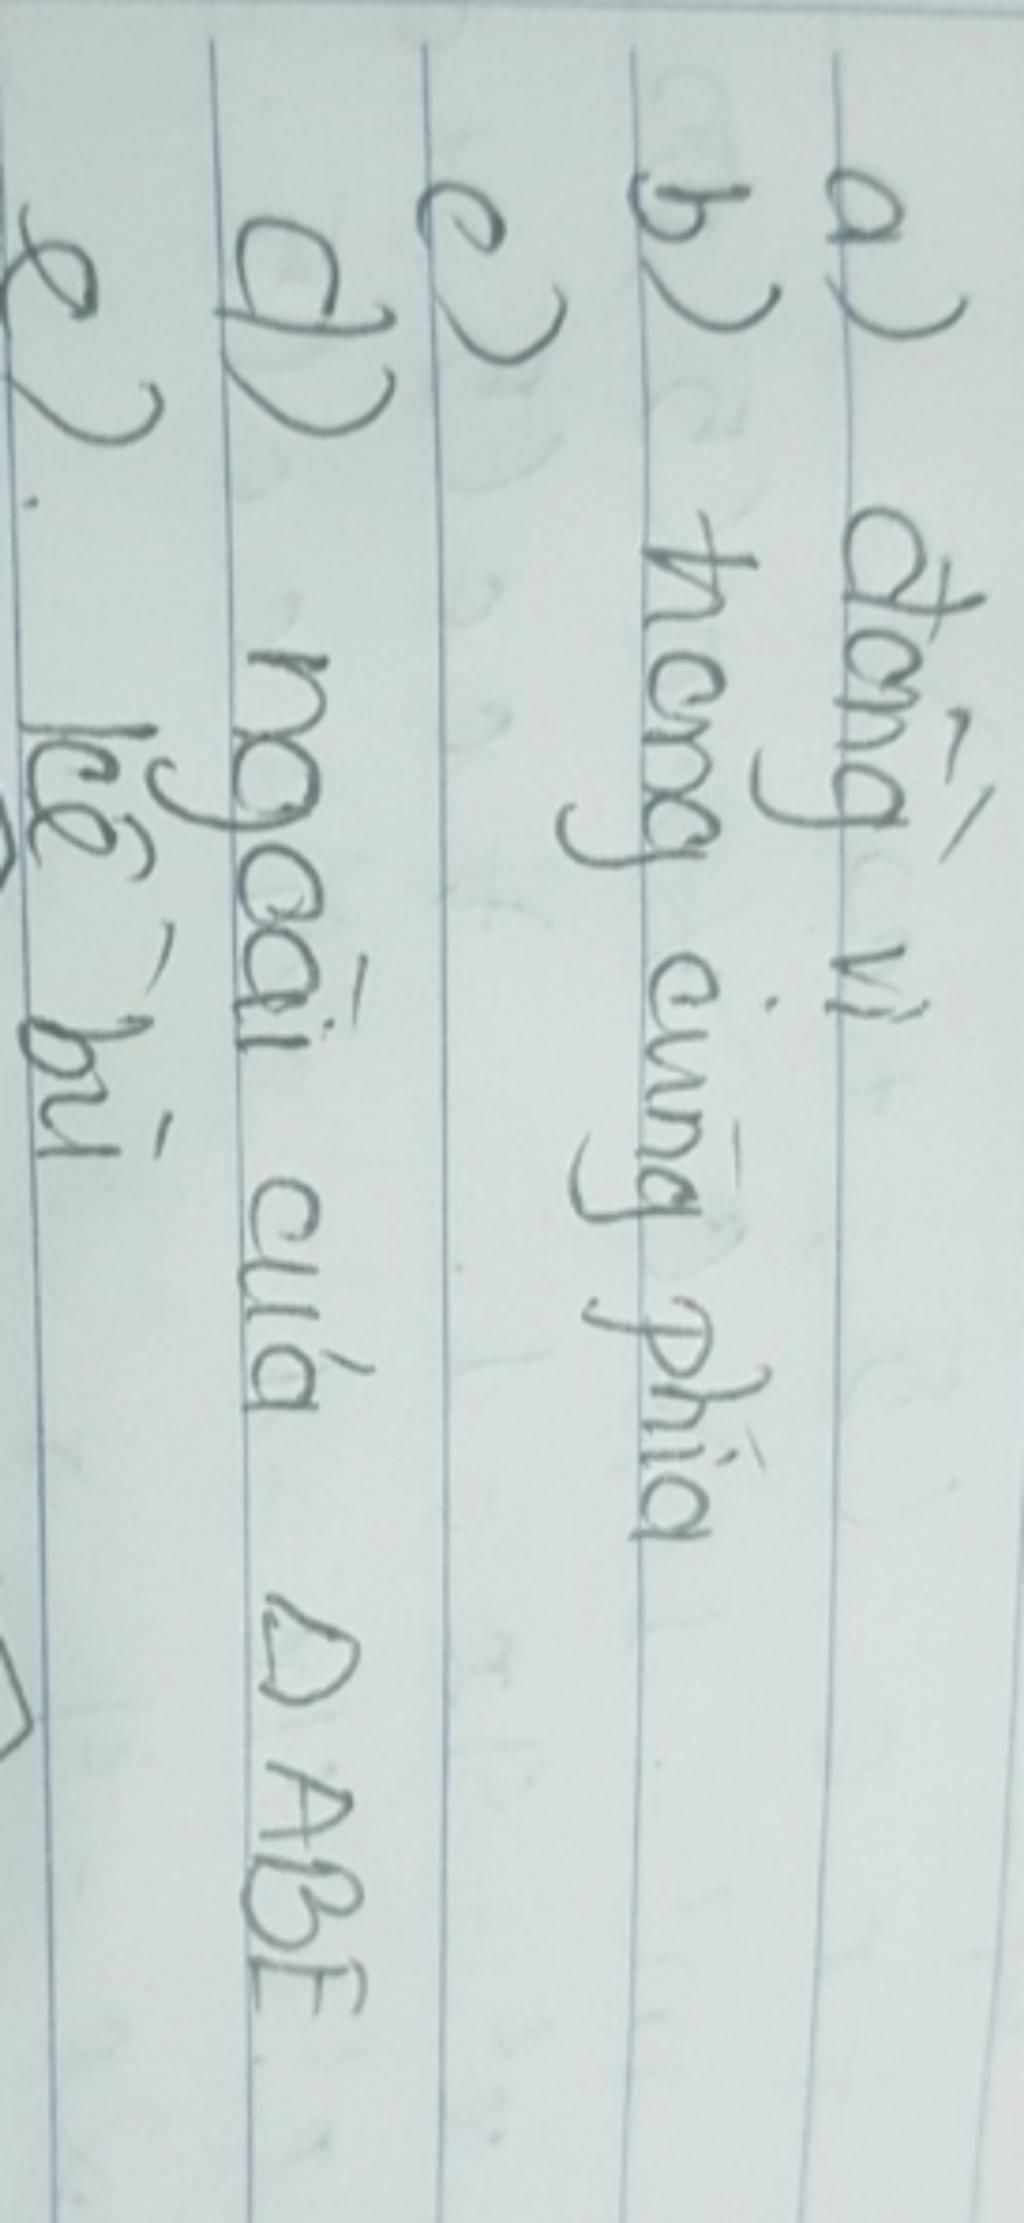 a) đồng vị
b) trong cùng phía
c)
d) ngoài của Δ ABE
e). kề bù